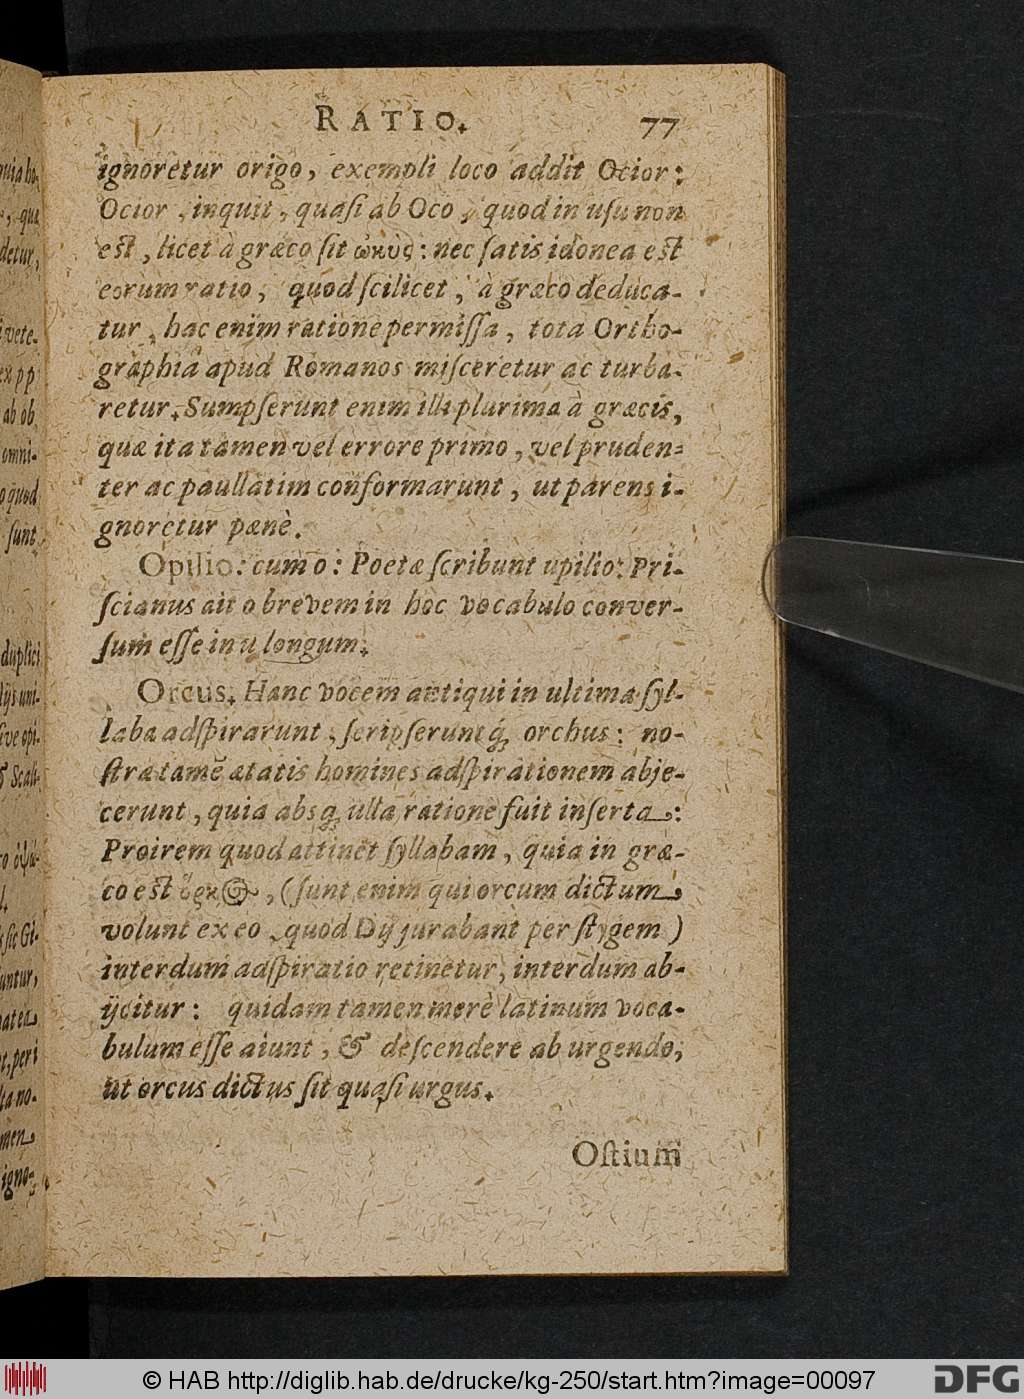 RATIO. 77
ignoretur origo, exempli loco addit Ocior:
Ocior, inquit, quaſi ab Oco, quod in uſu non
est, licet à græco ſit ὠκὺς: nec ſatis idonea est
eorum ratio, quod ſcilicet, à græco deduca-
tur, hac enim ratione permiſſa, tota Ortho-
graphia apud Romanos miſceretur ac turba-
retur. Sumpſerunt enim illi plurima à græcis,
quæ ita tamen vel errore primo, vel pruden-
ter ac paullatim conformarunt, ut parens i-
gnoretur pænè.
Opilio: cum o: Poetæ ſcribunt upilio: Pri-
ſcianus ait o brevem in hoc vocabulo conver-
ſum eſſe in u longum.
Orcus. Hanc vocem antiqui in ultima ſyl-
laba adſpirarunt, ſcripſeruntq́; orchus: no-
ſtræ tamẽ ætatis homines adſpirationem abje-
cerunt, quia absq; ulla ratione fuit inſerta:
Proirem quod attinet ſyllabam, quia in græ-
co est ὅρκος, (ſunt enim qui orcum dictum
volunt ex eo, quod Dij jurabant per ſtygem)
interdum adſpiratio retinetur, interdum ab-
ijcitur: quidam tamen merè latinum voca-
bulum eſſe aiunt, & deſcendere ab urgendo,
ut orcus dictus ſit quaſi urgus.
Oſtium
© HAB http://diglib.hab.de/drucke/kg-250/start.htm?image=00097
DFG